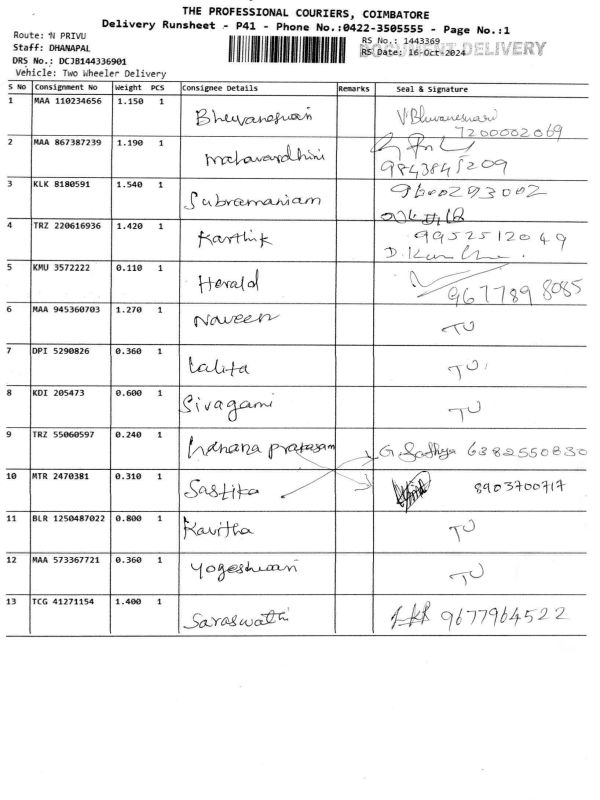 THE PROFESSIONAL COURIERS, COIMBATORE
Delivery Runsheet - P41 - Phone No.:0422-3505555 - Page No.:1
Route: N PRIVU
Staff: DHANAPAL
DRS No.: DCJB144336901
Vehicle: Two Wheeler Delivery
RS No.: 1443369
RS Date: 16-Oct-2024
DOCUMENT DELIVERY
S No Consignment No Weight PCS Consignee Details Remarks Seal & Signature
1 MAA 110234656 1.150 1 Bhuvaneswari V Bhuvaneswari
7200002069
2 MAA 867387239 1.190 1 mahavardhini
9843845209
3 KLK 8180591 1.540 1 Subramaniam 9600293002
4 TRZ 220616936 1.420 1 Karthik 9952512049
5 KMU 3572222 0.110 1 Herald 9677898085
6 MAA 945360703 1.270 1 Naveen TU
7 DPI 5290826 0.360 1 Lalita TU
8 KDI 205473 0.600 1 Sivagami TU
9 TRZ 55060597 0.240 1 G. Sadhya 6382550830
10 MTR 2470381 0.310 1 Sastika 8903700717
11 BLR 1250487022 0.800 1 Kavitha TU
12 MAA 573367721 0.360 1 Yogeshwari TU
13 TCG 41271154 1.400 1 Saraswathi 9677964522